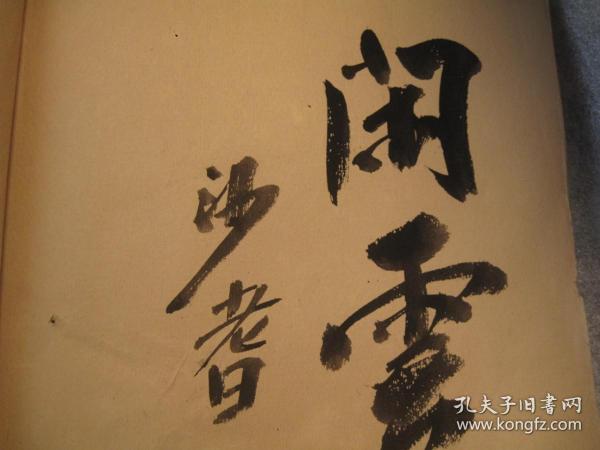 閑雲
沙耆
孔夫子旧書网
www.kongfz.com